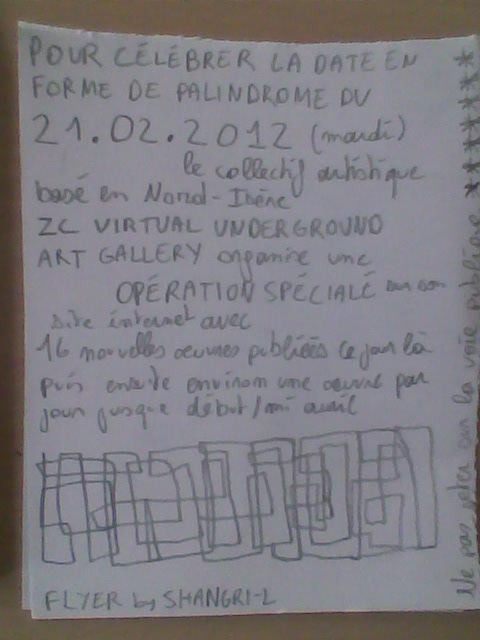 POUR CÉLÉBRER LA DATE EN
FORME DE PALINDROME DU
21.02.2012 (mardi)
le collectif artistique
basé en Nord-Isère
ZC VIRTUAL UNDERGROUND
ART GALLERY organise une
OPÉRATION SPÉCIALE sur son
site internet avec
16 nouvelles œuvres publiées ce jour là
puis ensuite environ une œuvre par
jour jusque début/mi avril
FLYER by SHANGRI-L
Ne pas jeter sur la voie publique ******